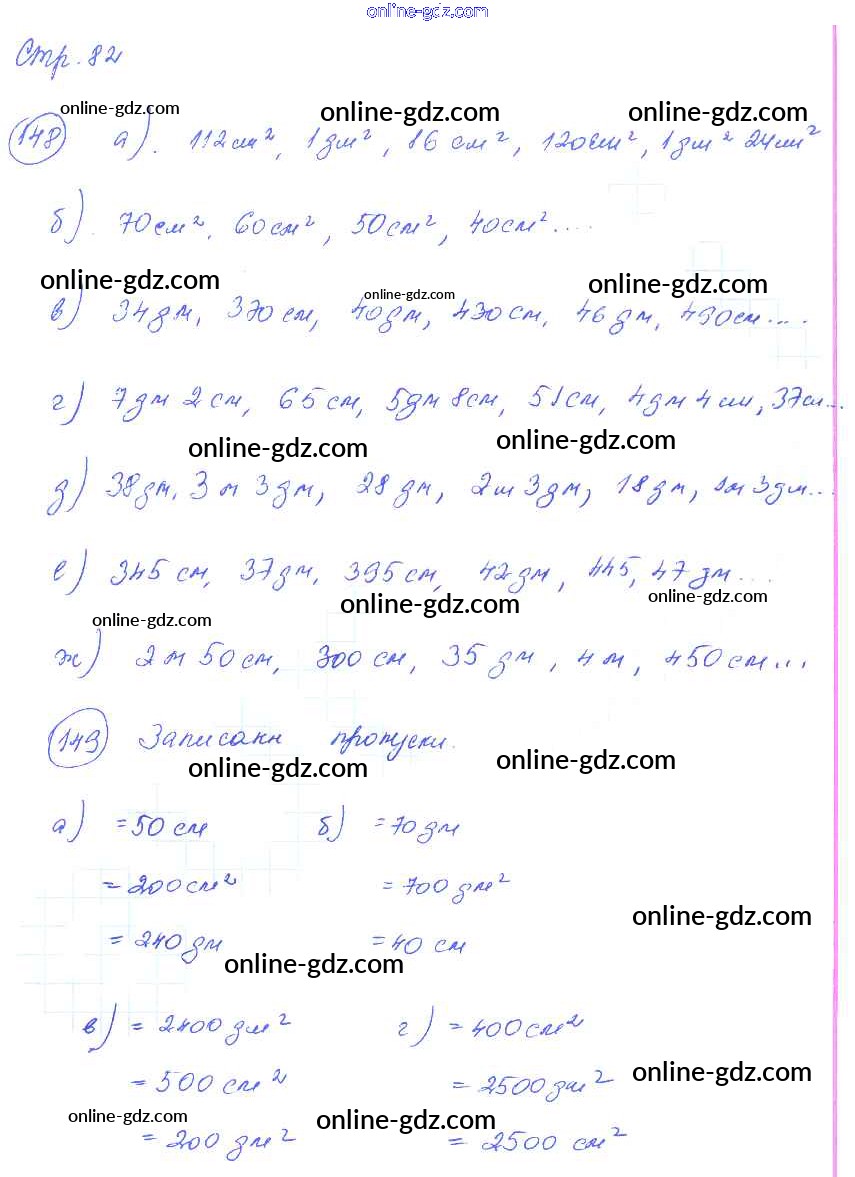 online-gdz.com
Стр. 82
online-gdz.com online-gdz.com online-gdz.com
148 а). 112 см², 1 дм², 16 см², 120 см², 1 дм² 24 см²
б). 70 см², 60 см², 50 см², 40 см²....
online-gdz.com online-gdz.com online-gdz.com
в) 34 дм, 370 см, 40 дм, 430 см, 46 дм, 490 см....
г) 7 дм 2 см, 65 см, 5 дм 8 см, 51 см, 4 дм 4 см, 37 см...
online-gdz.com online-gdz.com
д) 38 дм, 3 м 3 дм, 28 дм, 2 м 3 дм, 18 дм, 1 м 3 дм...
е) 345 см, 37 дм, 395 см, 42 дм, 445, 47 дм....
online-gdz.com online-gdz.com online-gdz.com
ж) 2 м 50 см, 300 см, 35 дм, 4 м, 450 см...
149 Записани пропуски.
online-gdz.com online-gdz.com
а) = 50 см б) = 70 дм
= 200 см² = 700 дм²
online-gdz.com
= 240 дм = 40 см
online-gdz.com
в) = 2400 дм² г) = 400 см²
= 500 см² = 2500 дм²
online-gdz.com
online-gdz.com online-gdz.com
= 200 дм² = 2500 см²